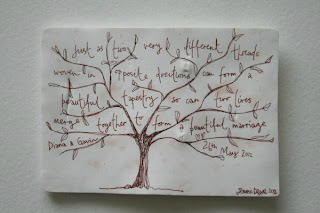 Just as two very different threads
woven in opposite directions can form a
beautiful tapestry so can two lives
merge together to form a beautiful marriage
Diana &
26th May